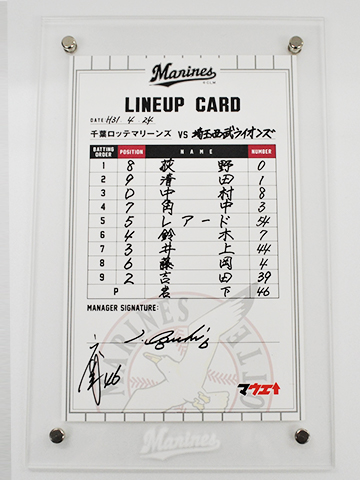 Marines
LINEUP CARD
DATE H31 4. 24
千葉ロッテマリーンズ VS 埼玉西武ライオンズ
BATTING ORDER POSITION NAME NUMBER
1 8 荻野 0
2 9 清田 1
3 D 中村 8
4 7 角中 3
5 5 レアード 54
6 4 鈴木 7
7 3 井上 44
8 6 藤岡 4
9 2 吉田 39
P 岩下 46
MANAGER SIGNATURE:
46
マウエ↑
MARINES
LOTTE
Marines